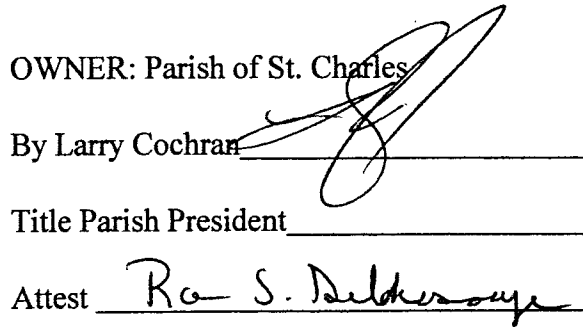 OWNER: Parish of St. Charles
By Larry Cochran
Title Parish President
Attest S.